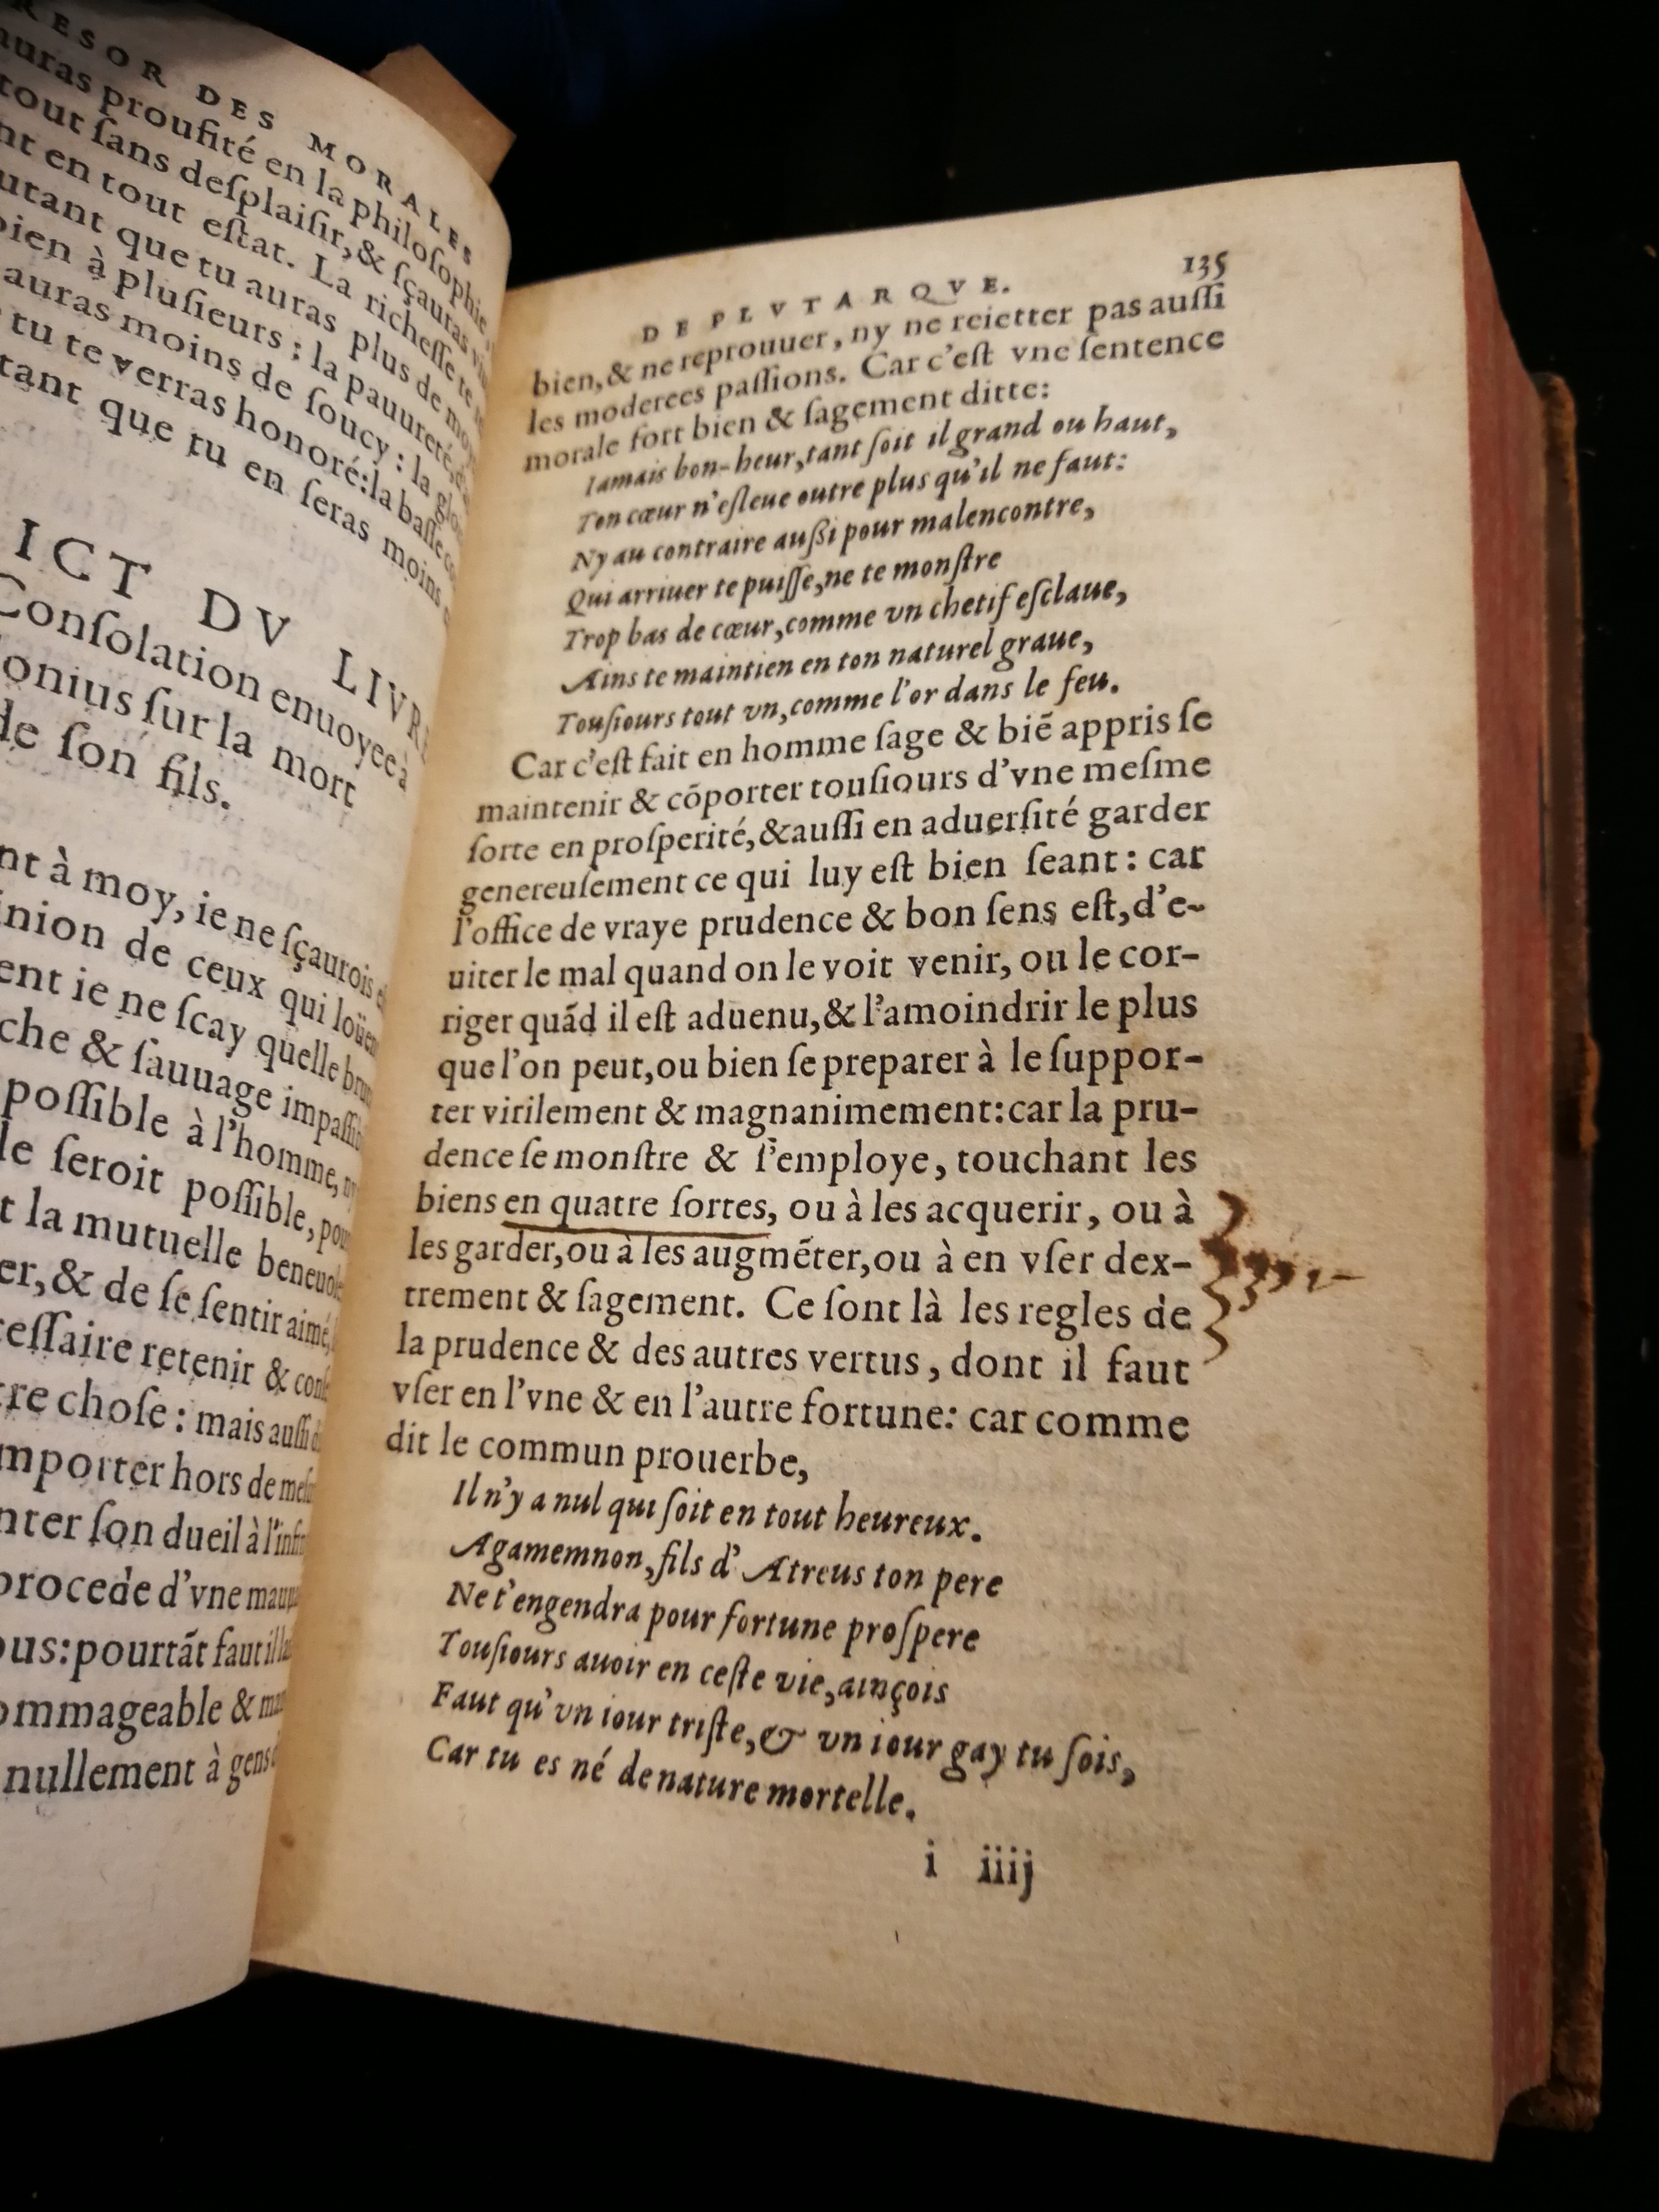 RESOR DES MORALES
auras proufité en la philoſophie,
tout ſans deſplaiſir, & ſçauras
nt en tout eſtat. La richeſſe te
utant que tu auras plus de
bien à pluſieurs : la pauureté,
auras moins de ſoucy : la
tu te verras honoré: la baſſe
tant que tu en ſeras moins
ICT DV LIVRE
Conſolation enuoyee à
onius ſur la mort
de ſon fils.
nt à moy, ie ne ſçaurois
inion de ceux qui loüent
ent ie ne ſcay quelle
che & ſauuage
poſſible à l'homme,
le ſeroit poſſible,
t la mutuelle
er, & de ſe ſentir aimé,
ceſſaire retenir &
tre choſe : mais auſſi
mporter hors de
nter ſon dueil à
procede d'vne
ous: pourtãt faut il
ommageable &
nullement à gens
DE PLVTARQVE. 135
bien, & ne reprouuer, ny ne reietter pas auſſi
les moderees paſſions. Car c'eſt vne ſentence
morale fort bien & ſagement ditte:
Iamais bon-heur, tant ſoit il grand ou haut,
Ton cœur n'eſleue outre plus qu'il ne faut:
Ny au contraire außi pour malencontre,
Qui arriuer te puiſſe, ne te monſtre
Trop bas de cœur, comme vn chetif eſclaue,
Ains te maintien en ton naturel graue,
Touſiours tout vn, comme l'or dans le feu.
Car c'eſt fait en homme ſage & biẽ appris ſe
maintenir & cõporter touſiours d'vne meſme
ſorte en proſperité, & auſſi en aduerſité garder
genereuſement ce qui luy eſt bien ſeant : car
l'office de vraye prudence & bon ſens eſt, d'e-
uiter le mal quand on le voit venir, ou le cor-
riger quãd il eſt aduenu, & l'amoindrir le plus
que l'on peut, ou bien ſe preparer à le ſuppor-
ter virilement & magnanimement: car la pru-
dence ſe monſtre & ſ'employe, touchant les
biens en quatre ſortes, ou à les acquerir, ou à
les garder, ou à les augmẽter, ou à en vſer dex-
trement & ſagement. Ce ſont là les regles de
la prudence & des autres vertus, dont il faut
vſer en l'vne & en l'autre fortune: car comme
dit le commun prouerbe,
Il n'y a nul qui ſoit en tout heureux.
Agamemnon, fils d'Atreus ton pere
Ne t'engendra pour fortune proſpere
Touſiours auoir en ceſte vie, ainçois
Faut qu'vn iour triſte, & vn iour gay tu ſois,
Car tu es né de nature mortelle.
i iiij